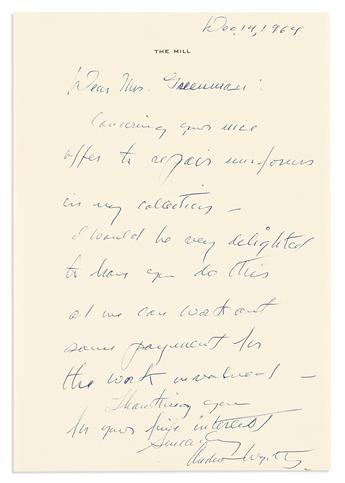 Dec. 19, 1969
THE MILL
Dear Mrs. Greenman:
Concerning your nice
offer to repair uniforms
in my collection –
I would be very delighted
to have you do this
at we can work out
some payment for
the work involved –
Thanking you
for your fine interest
Sincerely
Andrew Wyeth